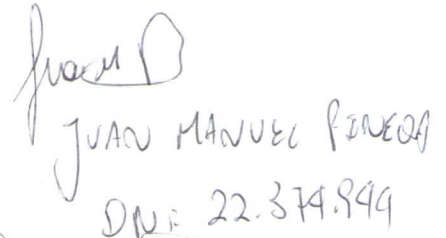 Juan P
JUAN MANUEL PINEDA
DNI 22.374.949